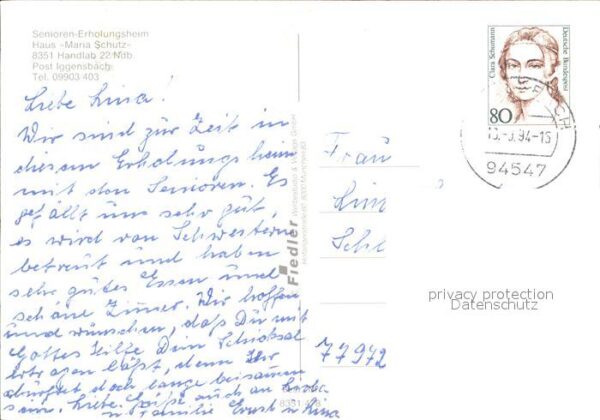 Senioren-Erholungsheim
Haus »Maria Schutz«
8351 Handlab 22/Ndb
Post Iggensbach
Tel. 09903 403
Liebe Lina!
Wir sind zur Zeit in
diesem Erholungsheim
mit den Senioren. Es
gefällt uns sehr gut,
es wird von Schwestern
betreut und haben
sehr gutes Essen und
schöne Zimer. Wir hoffen
und wünschen, daß Du mit
Gottes Hilfe Dein Schicksal
ertragen läßt, denn Ihr
dürftet doch lange beisammen
sein. Liebe Grüße auch an
u. Familie Ernst u. Lina
Fiedler
8351 4/8
Clara Schumann
Deutsche Bundespost
80
94-15
94547
Frau
Lin
Schl
77972
privacy protection
Datenschutz